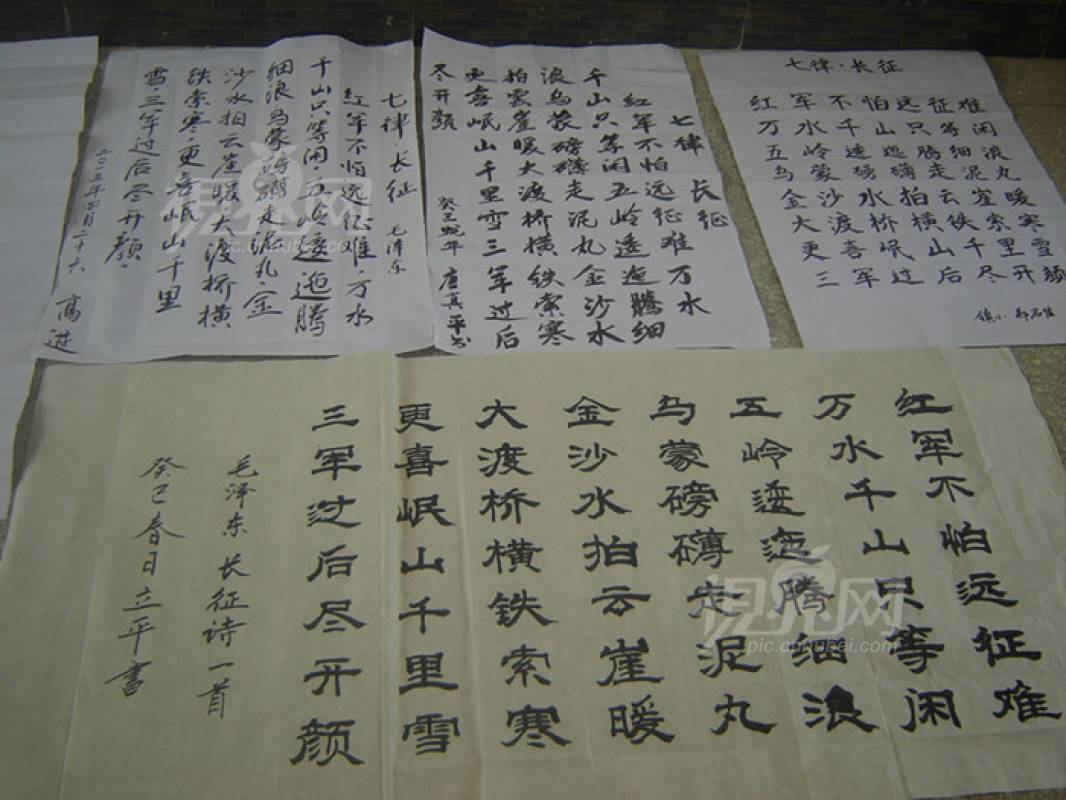 七律·长征 毛泽东
红军不怕远征难·万水
千山只等闲·五岭逶迤腾
细浪乌蒙磅礴走泥丸·金
沙水拍云崖暖大渡桥横
铁索寒更喜岷山千里
雪·三军过后尽开颜·
二〇一三年四月二十六 高进
七律 长征
红军不怕远征难万水
千山只等闲五岭逶迤腾细
浪乌蒙磅礴走泥丸金沙水
拍雲崖暖大渡桥横铁索寒
更喜岷山千里雪三军过后
尽开颜
癸巳蛇年 唐真平书
七律·长征
红军不怕远征难
万水千山只等闲
五岭逶迤腾细浪
乌蒙磅礴走泥丸
金沙水拍云崖暖
大渡桥横铁索寒
更喜岷山千里雪
三军过后尽开颜
红军不怕远征难
万水千山只等闲
五岭逶迤腾细浪
乌蒙磅礴走泥丸
金沙水拍云崖暖
大渡桥横铁索寒
更喜岷山千里雪
三军过后尽开颜
毛泽东长征诗一首
癸巳春日立平書
视界网
pic.cnhubei.com